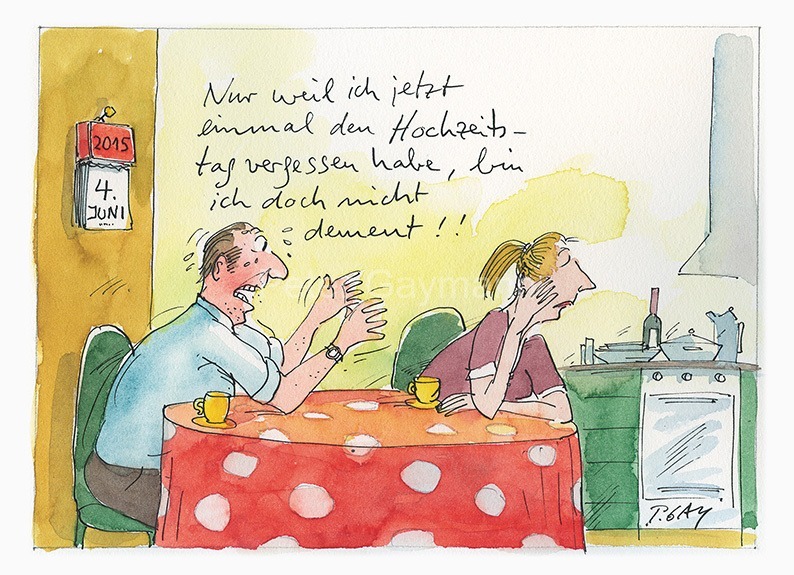 Nur weil ich jetzt
einmal den Hochzeits-
tag vergessen habe, bin
ich doch nicht
dement!!
2015
4.
JUNI
Peter Gaymann
P. GAY